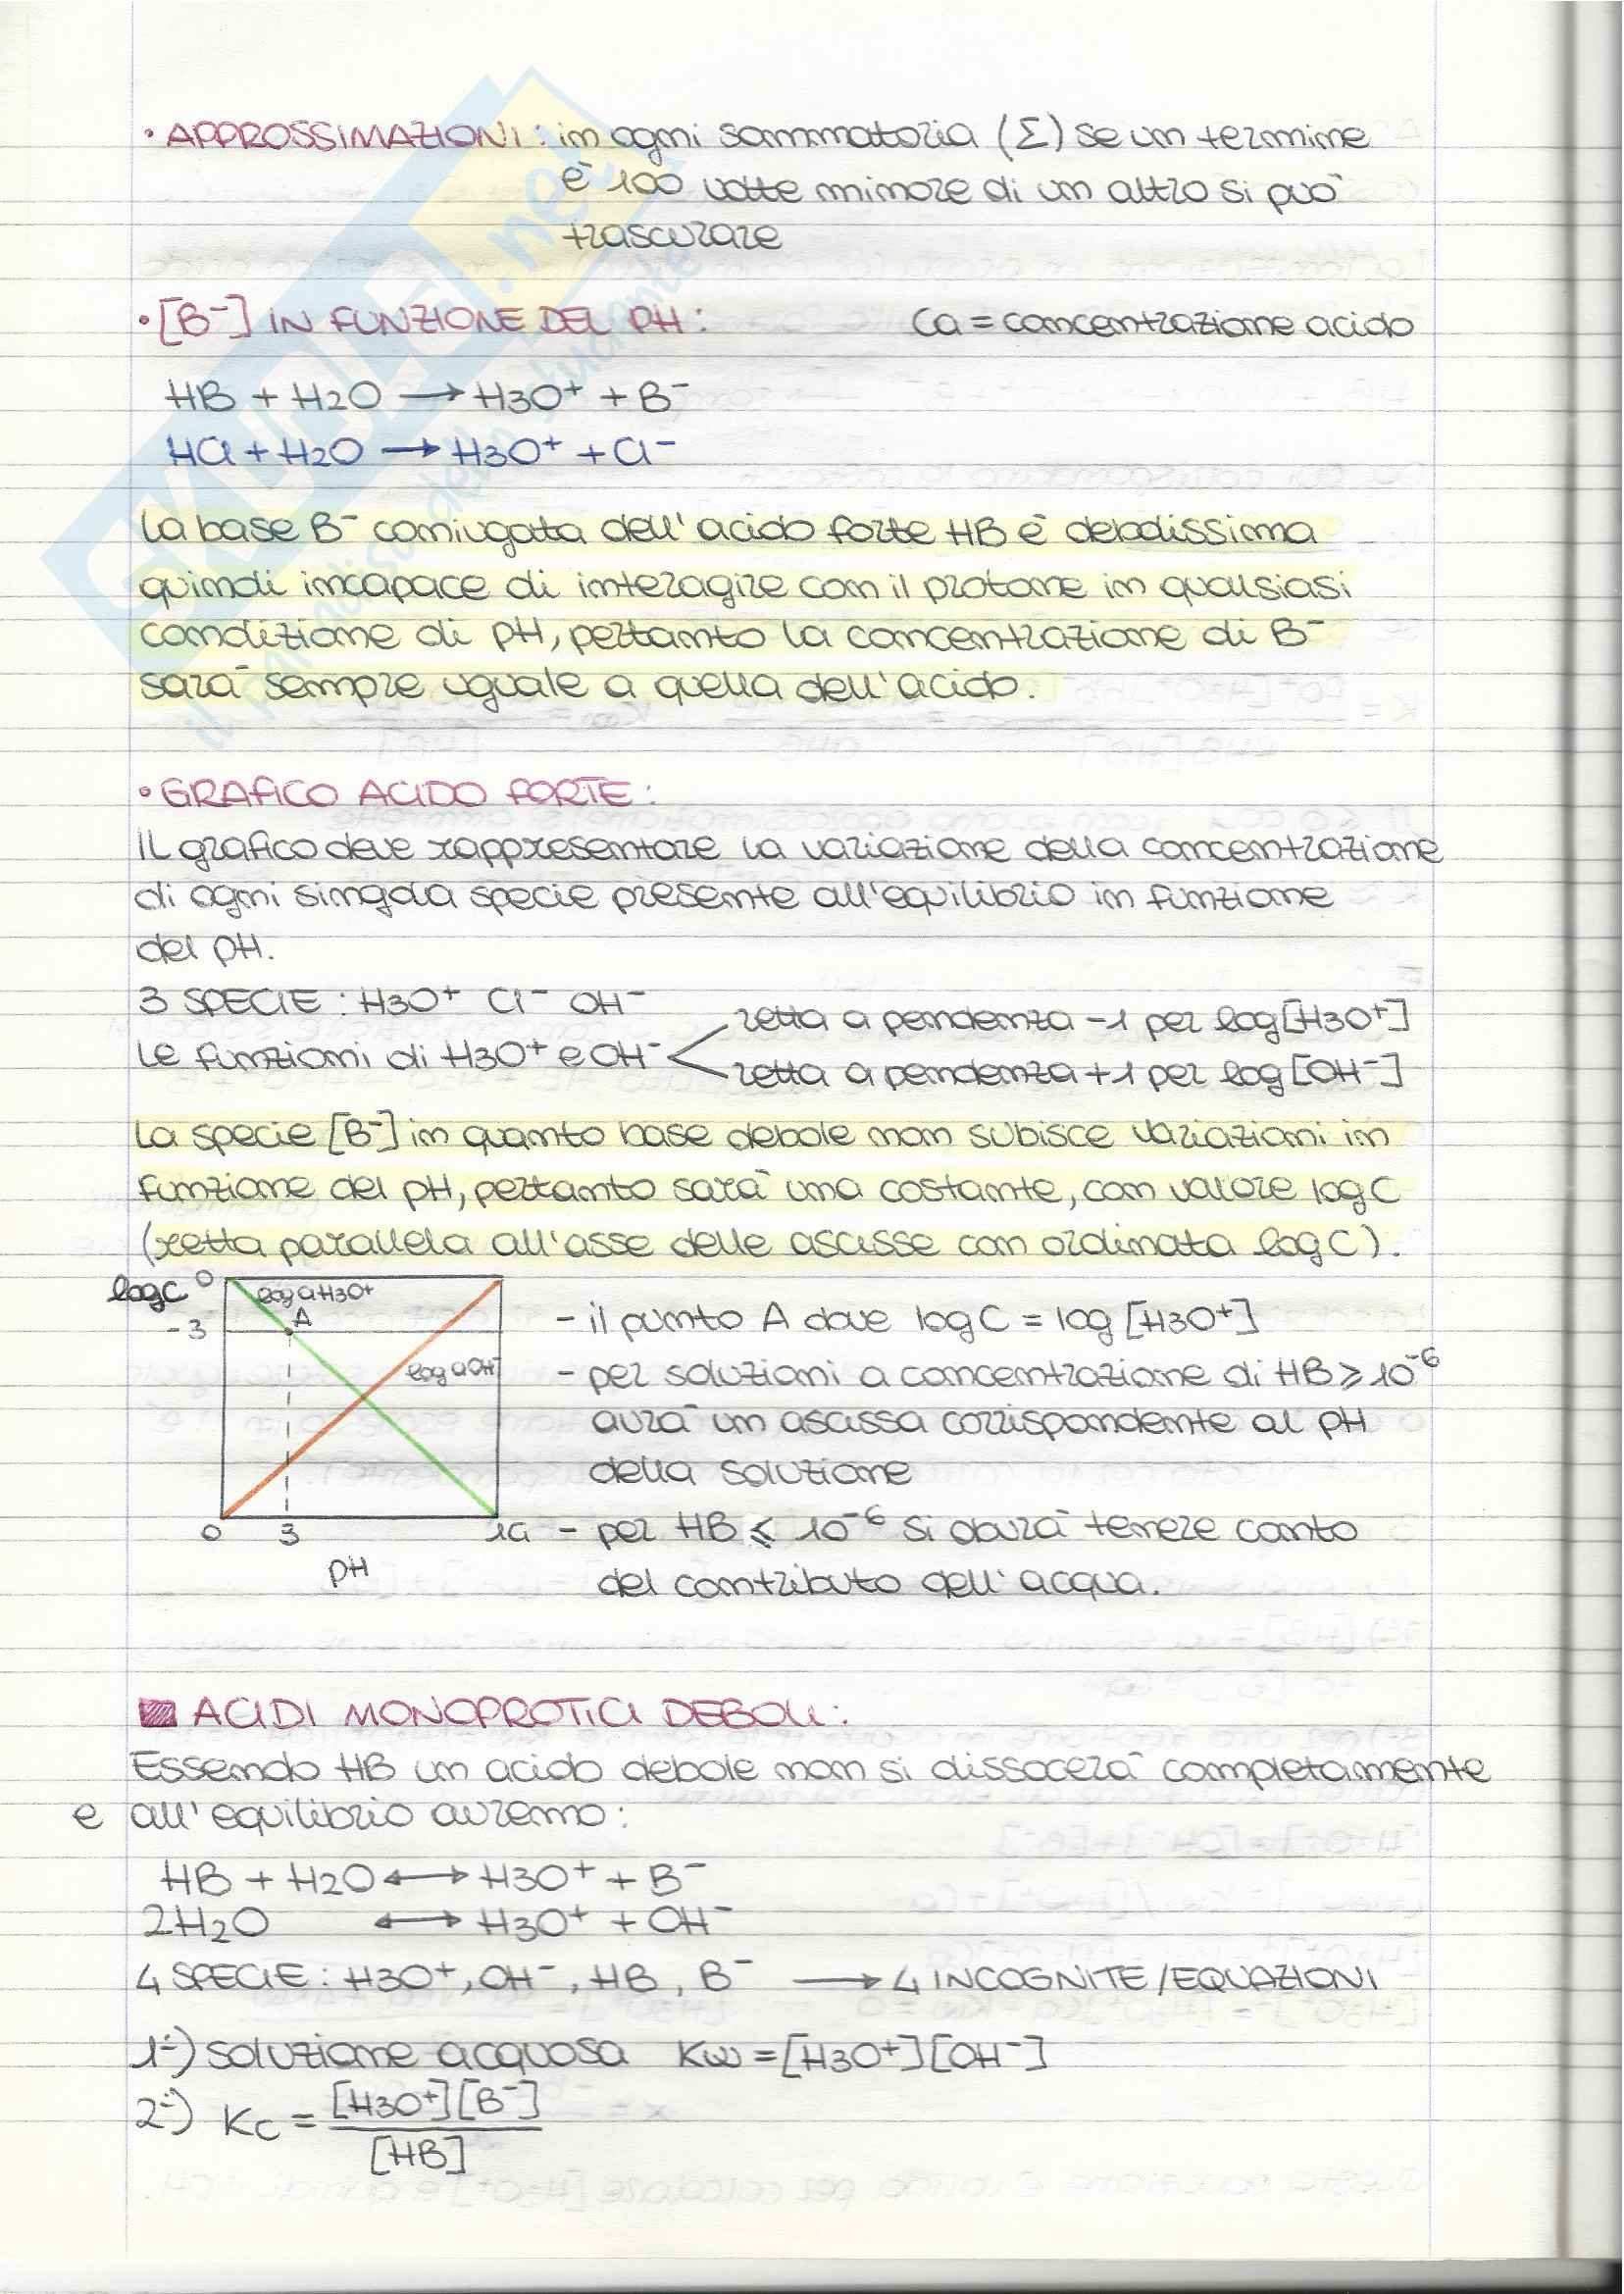 • APPROSSIMAZIONI: in ogni sommatoria (Σ) se un termine
è 100 volte minore di un altro si può
trascurare
• [B⁻] IN FUNZIONE DEL PH: Ca = concentrazione acido
HB + H2O → H3O⁺ + B⁻
HCl + H2O → H3O⁺ + Cl⁻
La base B⁻ coniugata dell'acido forte HB è debolissima
quindi incapace di interagire con il protone in qualsiasi
condizione di pH, pertanto la concentrazione di B⁻
sarà sempre uguale a quella dell'acido.
• GRAFICO ACIDO FORTE:
Il grafico deve rappresentare la variazione della concentrazione
di ogni singola specie presente all'equilibrio in funzione
del pH.
3 SPECIE: H3O⁺ Cl⁻ OH⁻
Le funzioni di H3O⁺ e OH⁻
retta a pendenza -1 per log[H3O⁺]
retta a pendenza +1 per log[OH⁻]
La specie [B⁻] in quanto base debole non subisce variazioni in
funzione del pH, pertanto sarà una costante, con valore logC
(retta parallela all'asse delle ascisse con ordinata logC).
logC 0
log aH3O⁺
A
-3
log aOH⁻
0 3 14
pH
- il punto A dove logC = log [H3O⁺]
- per soluzioni a concentrazione di HB ⩾ 10⁻⁶
avrà un ascissa corrispondente al pH
della soluzione
- per HB ⩽ 10⁻⁶ si dovrà tenere conto
del contributo dell'acqua.
ACIDI MONOPROTICI DEBOLI:
Essendo HB un acido debole non si dissocerà completamente
e all'equilibrio avremo:
HB + H2O ↔ H3O⁺ + B⁻
2H2O ↔ H3O⁺ + OH⁻
4 SPECIE: H3O⁺, OH⁻, HB, B⁻ → 4 INCOGNITE/EQUAZIONI
1÷) soluzione acquosa Kw = [H3O⁺][OH⁻]
2÷) Kc = [H3O⁺][B⁻]
[HB]
SKUOLA.net
il paradiso dello studente